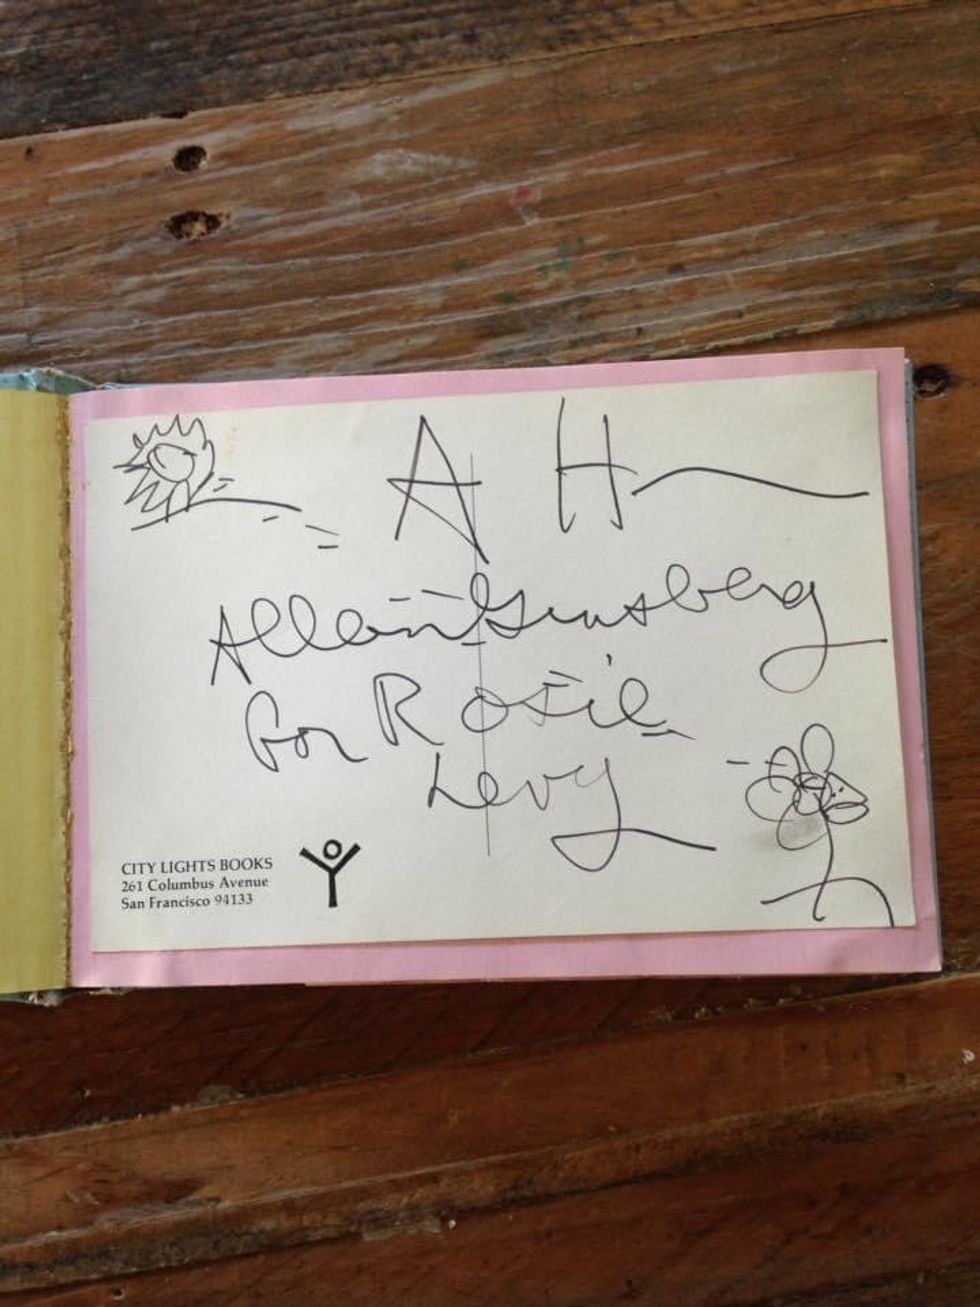 AH
Allen Ginsberg
for Rosie
Levy
CITY LIGHTS BOOKS
261 Columbus Avenue
San Francisco 94133